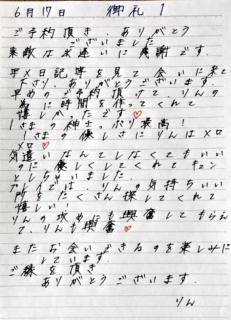 6月17日 御礼 1
ご予約頂き、ありがとう
ございました
素敵な出逢いに感謝です。
写メ日記等を見て会いに来て
ありがとうございます。
早めのご予約頂けて、りんの
為に時間を作ってくれて
嬉しかったです♡
1さまの紳士っぷり最高!
1さまの優しさにりんはメロ
メロ
気遣いなんてしなくてもいい
のに優しくてくれてキュン
としちゃいました。
プレイでは、りんの気持ちいい
所をたくさん探してくれて
嬉しい!
りんの攻めにも興奮してもらえ
て、りんも興奮♡
またお会いできるのを楽しみに
しています
ご縁を頂き
ありがとうございます。
りん